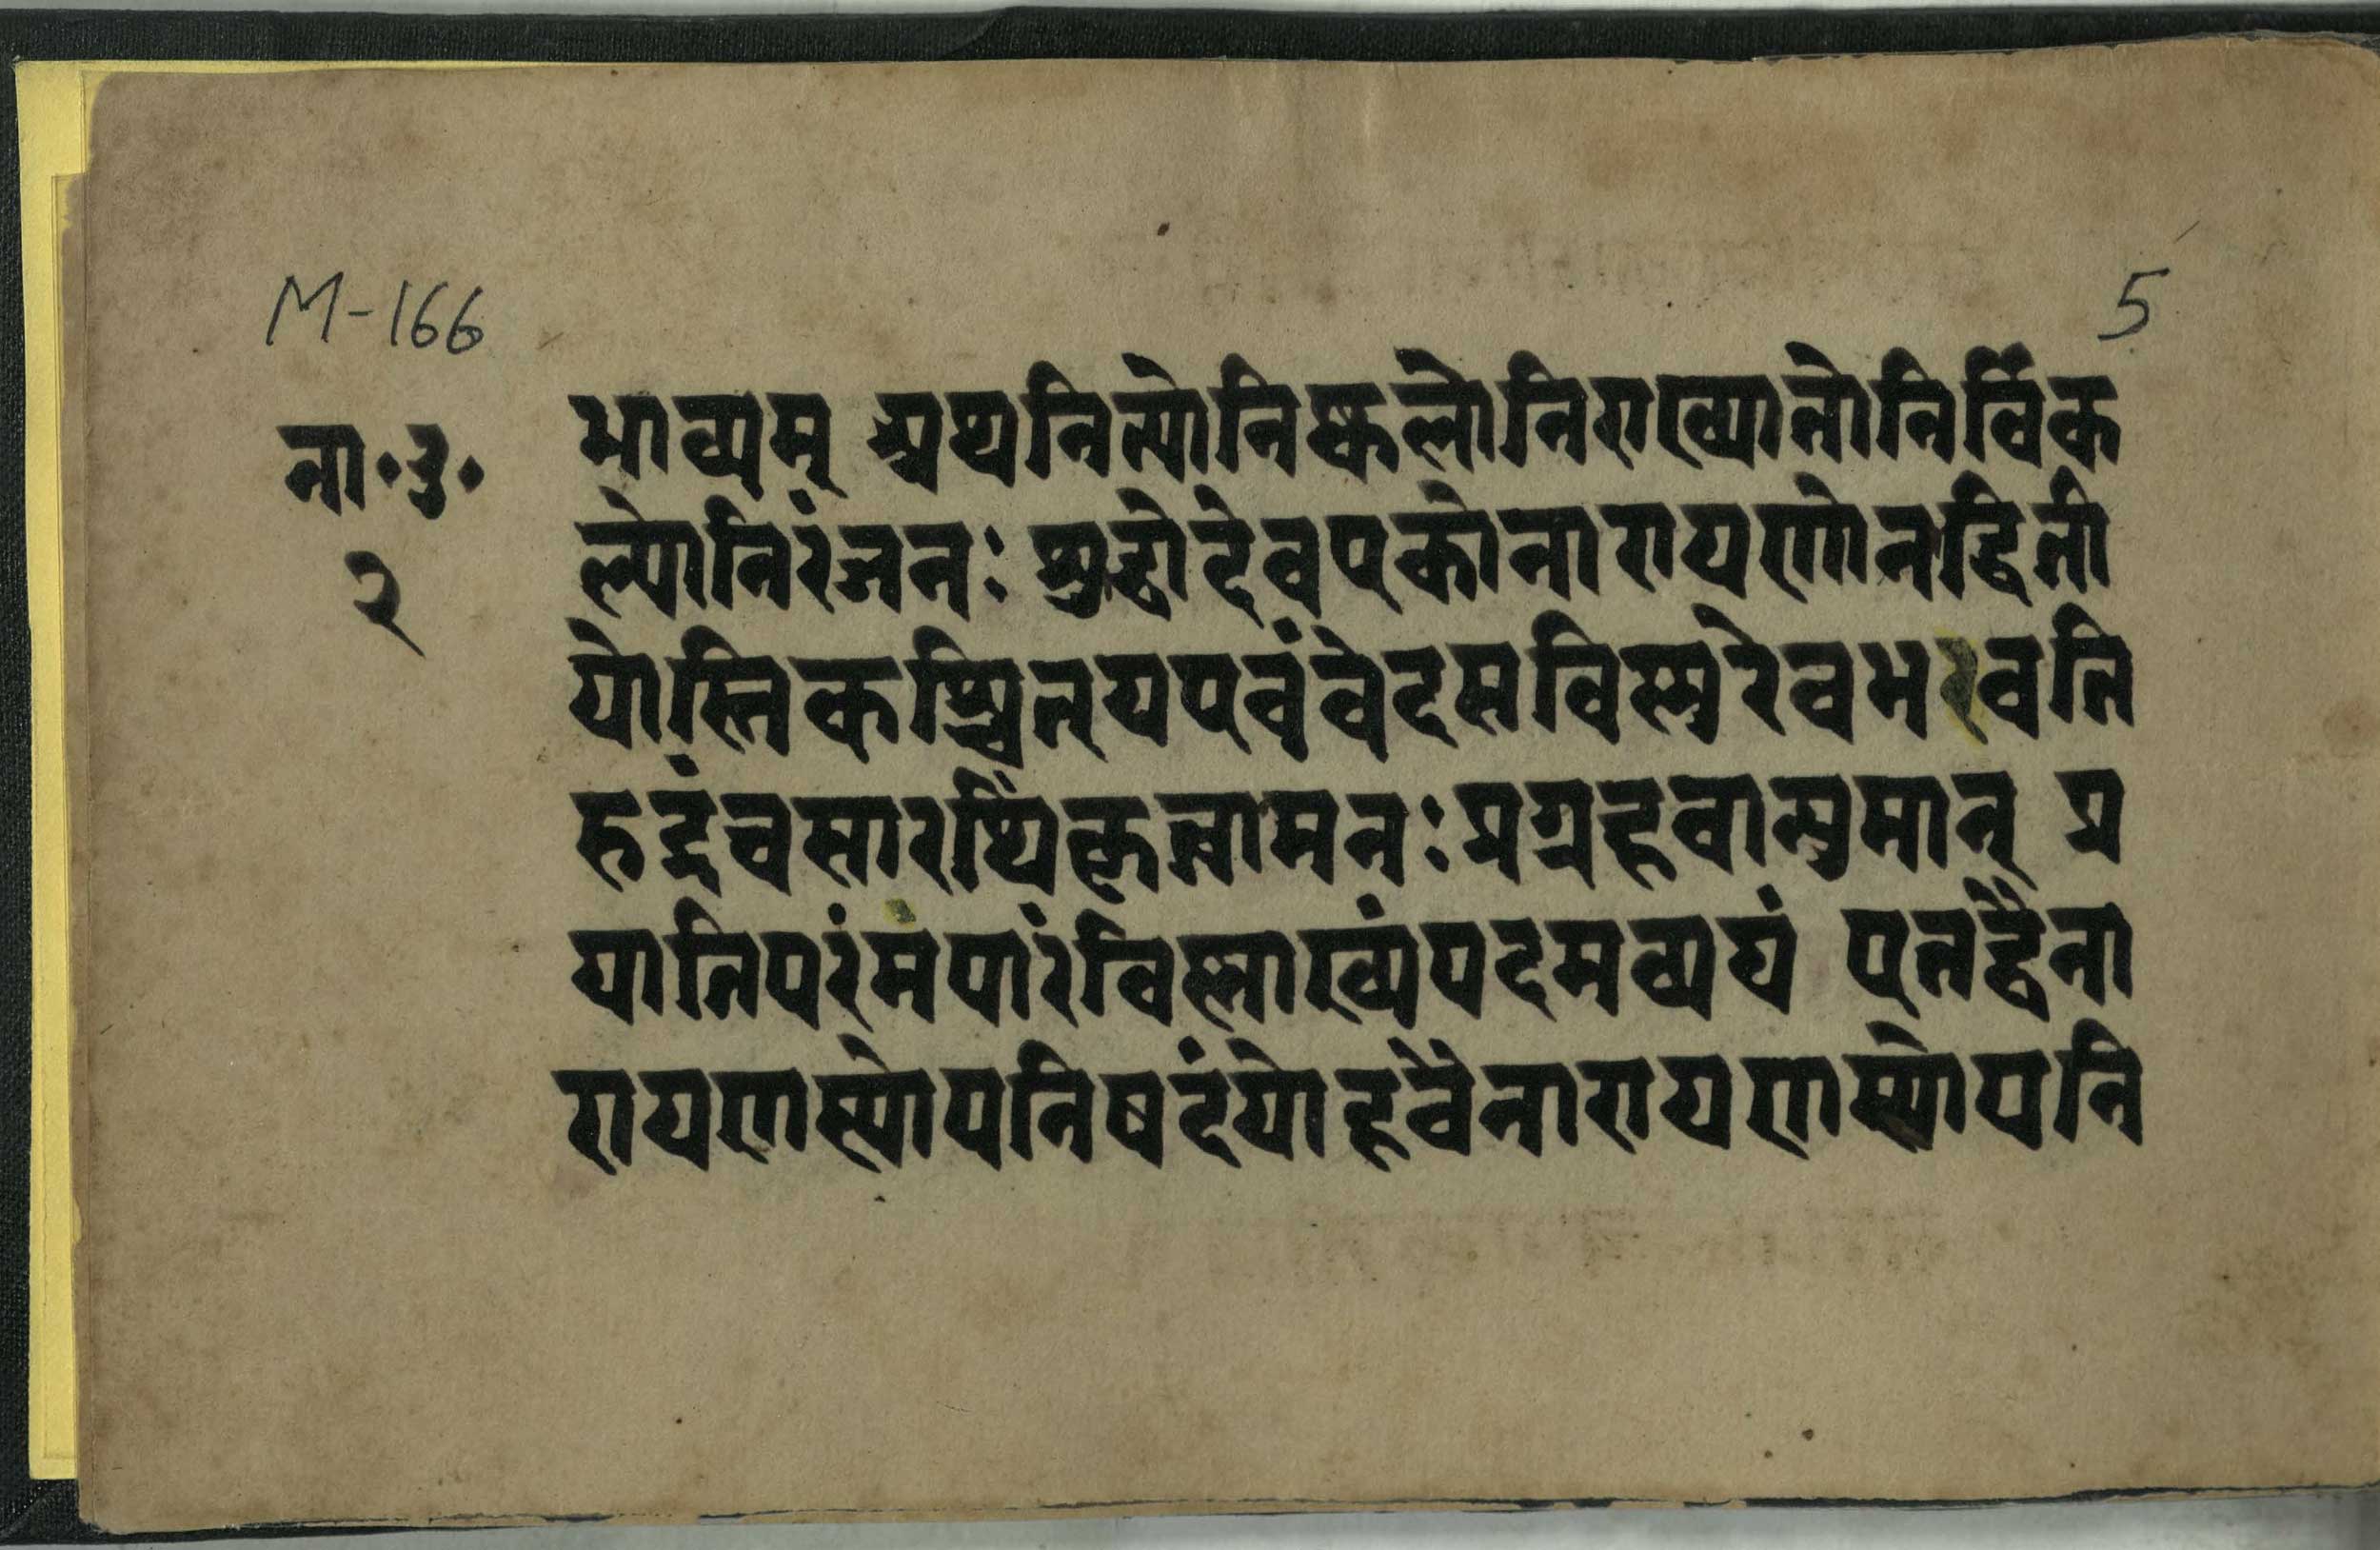 M-166
5
ना·उ·
२
भाव्यम् अथनित्योनिष्कलोनिराख्यातोनिर्विक
ल्पोनिरंजनः शुद्धोदेवएकोनारायणोनद्विती
योस्तिकश्चित्यएवंवेदसविष्णुरेवभवति
हृदंचसारथिंकृत्वामनःप्रग्रहवान्बुमान् प्र
यातिपरंमपारंविष्णाख्यंपदमव्ययं एतद्वैना
रायणस्योपनिषदंयोहवैनारायणस्योपनि